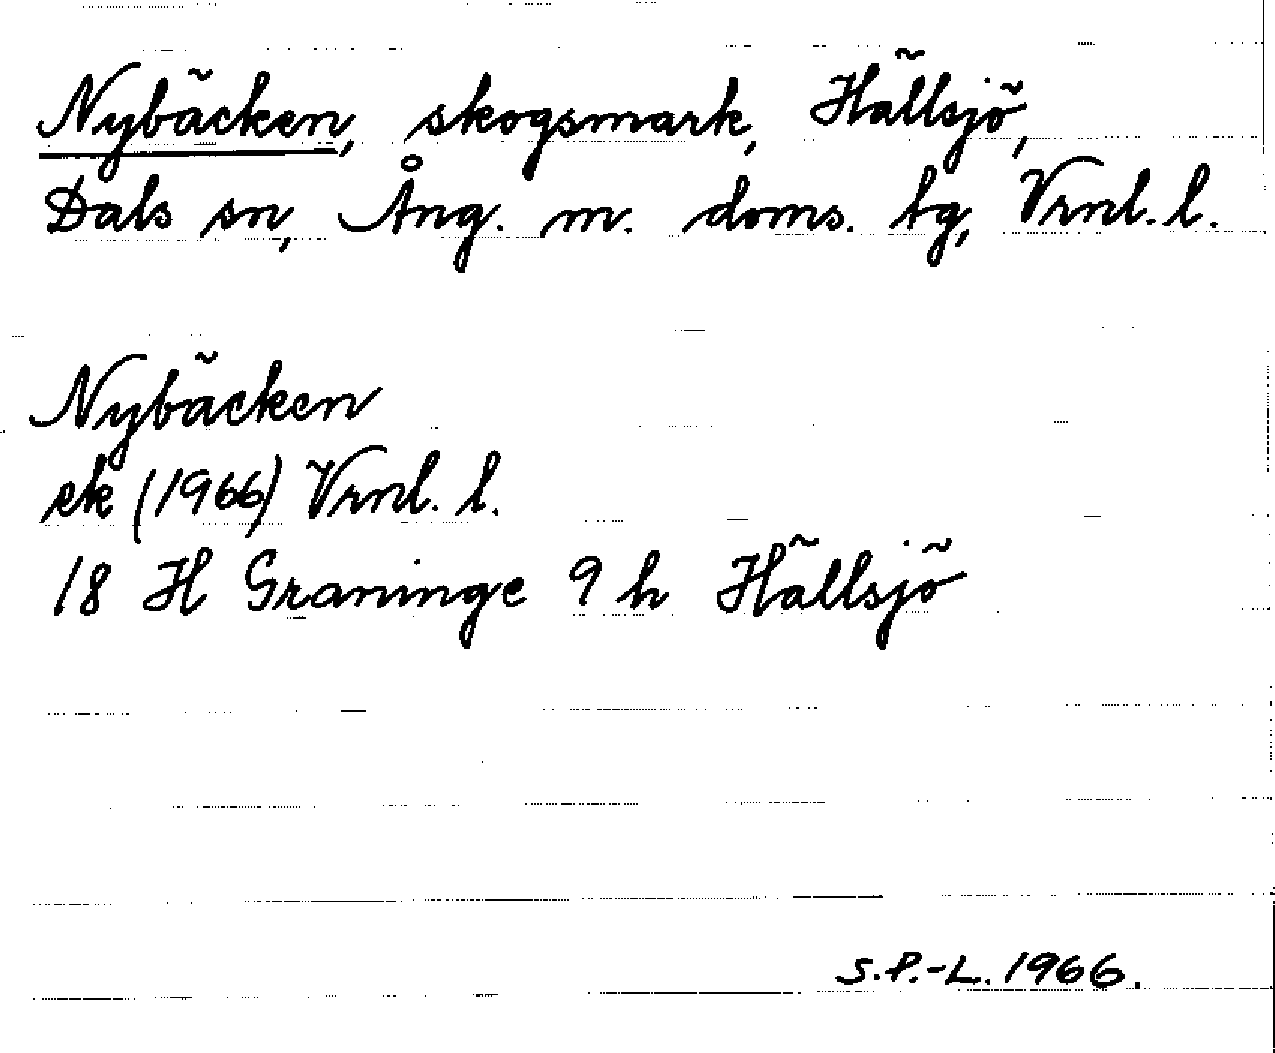 Nybäcken, skogsmark, Hällsjö,
Dals sn, Ång. m. doms. tg, Vrnl. l.
Nybäcken
ek (1966) Vrnl. l.
18 H Graninge 9 h Hällsjö
S.P.-L. 1966.